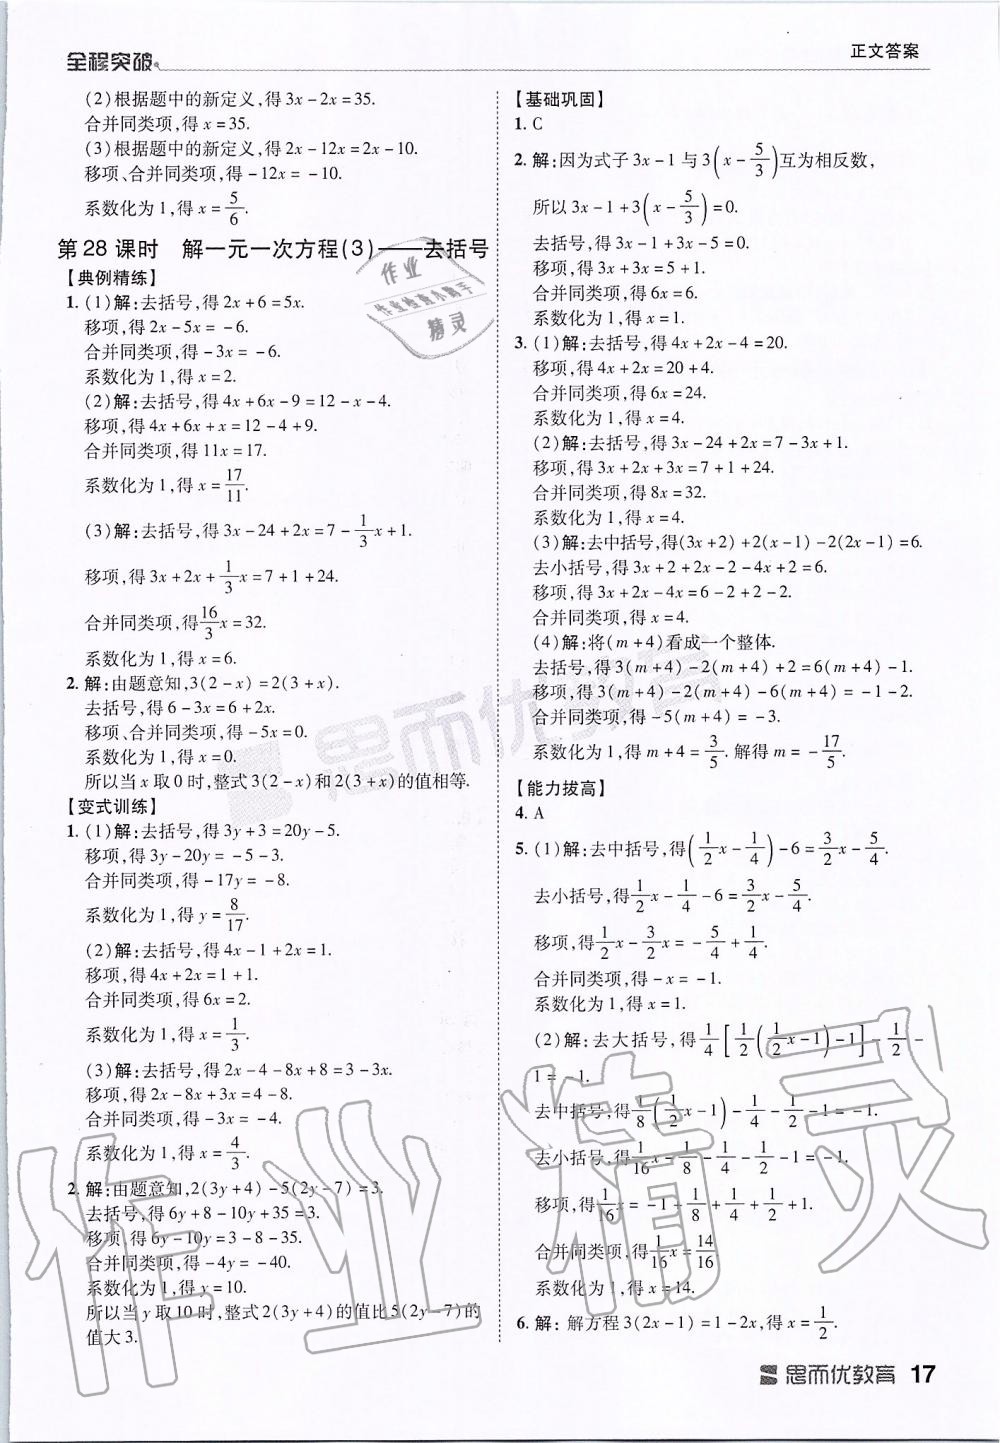 全程突破
正文答案
(2)根据题中的新定义,得 3x-2x=35.
合并同类项,得 x=35.
(3)根据题中的新定义,得 2x-12x=2x-10.
移项、合并同类项,得 -12x=-10.
系数化为 1,得 x=5/6.
第 28 课时 解一元一次方程(3)——去括号
【典例精练】
1. (1)解:去括号,得 2x+6=5x.
移项,得 2x-5x=-6.
合并同类项,得 -3x=-6.
系数化为 1,得 x=2.
(2)解:去括号,得 4x+6x-9=12-x-4.
移项,得 4x+6x+x=12-4+9.
合并同类项,得 11x=17.
系数化为 1,得 x=17/11.
(3)解:去括号,得 3x-24+2x=7-1/3x+1.
移项,得 3x+2x+1/3x=7+1+24.
合并同类项,得16/3x=32.
系数化为 1,得 x=6.
2. 解:由题意知,3(2-x)=2(3+x).
去括号,得 6-3x=6+2x.
移项、合并同类项,得 -5x=0.
系数化为 1,得 x=0.
所以当 x 取 0 时,整式 3(2-x)和 2(3+x)的值相等.
【变式训练】
1. (1)解:去括号,得 3y+3=20y-5.
移项,得 3y-20y=-5-3.
合并同类项,得 -17y=-8.
系数化为 1,得 y=8/17.
(2)解:去括号,得 4x-1+2x=1.
移项,得 4x+2x=1+1.
合并同类项,得 6x=2.
系数化为 1,得 x=1/3.
(3)解:去括号,得 2x-4-8x+8=3-3x.
移项,得 2x-8x+3x=4-8+3.
合并同类项,得 -3x=-4.
系数化为 1,得 x=4/3.
2. 解:由题意知,2(3y+4)-5(2y-7)=3.
去括号,得 6y+8-10y+35=3.
移项,得 6y-10y=3-8-35.
合并同类项,得 -4y=-40.
系数化为 1,得 y=10.
所以当 y 取 10 时,整式 2(3y+4)的值比 5(2y-7)的
值大 3.
【基础巩固】
1. C
2. 解:因为式子 3x-1 与 3(x-5/3)互为相反数,
所以 3x-1+3(x-5/3)=0.
去括号,得 3x-1+3x-5=0.
移项,得 3x+3x=5+1.
合并同类项,得 6x=6.
系数化为 1,得 x=1.
3. (1)解:去括号,得 4x+2x-4=20.
移项,得 4x+2x=20+4.
合并同类项,得 6x=24.
系数化为 1,得 x=4.
(2)解:去括号,得 3x-24+2x=7-3x+1.
移项,得 3x+2x+3x=7+1+24.
合并同类项,得 8x=32.
系数化为 1,得 x=4.
(3)解:去中括号,得(3x+2)+2(x-1)-2(2x-1)=6.
去小括号,得 3x+2+2x-2-4x+2=6.
移项,得 3x+2x-4x=6-2+2-2.
合并同类项,得 x=4.
(4)解:将(m+4)看成一个整体.
去括号,得 3(m+4)-2(m+4)+2=6(m+4)-1.
移项,得 3(m+4)-2(m+4)-6(m+4)=-1-2.
合并同类项,得 -5(m+4)=-3.
系数化为 1,得 m+4=3/5. 解得 m=-17/5.
【能力拔高】
4. A
5. (1)解:去中括号,得(1/2x-1/4)-6=3/2x-5/4.
去小括号,得1/2x-1/4-6=3/2x-5/4.
移项,得1/2x-3/2x=-5/4+1/4.
合并同类项,得 -x=-1.
系数化为 1,得 x=1.
(2)解:去大括号,得1/4[1/2(1/2x-1)-1]-1/2-
1=-1.
去中括号,得1/8(1/2x-1)-1/4-1/2-1=-1.
去小括号,得1/16x-1/8-1/4-1/2-1=-1.
移项,得1/16x=-1+1/8+1/4+1/2+1.
合并同类项,得1/16x=14/16.
系数化为 1,得 x=14.
6. 解: 解方程 3(2x-1)=1-2x,得 x=1/2.
思而优教育 17
作业
作业检查小助手
精灵
思而优教育
作业精灵